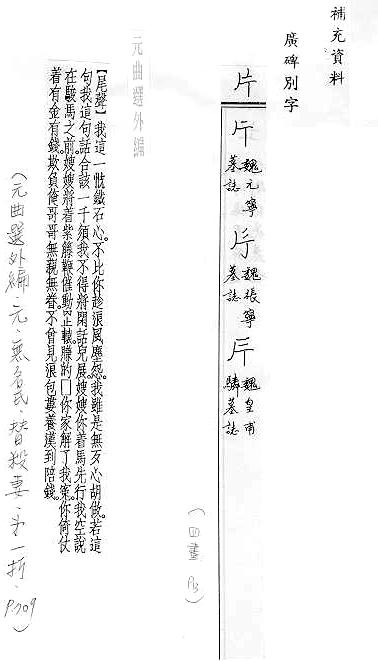 補充資料
廣碑別字
片
魏元寧墓誌
魏張寧墓誌
魏皇甫驎墓誌
(四畫 P13)
元曲選外編
【尾聲】我這一 鐵石心。不比你趁浪風塵怨。我雖是無歹心胡做。若這
句我這句話合該一千須我不得將閑話兒展。嫂嫂你着馬先行我空說
在駿馬之前。嫂嫂將着紫藤鞭催動 的□你家解了我 。你倚仗
着有金有錢。欺負俺哥哥無親無眷。不曾見浪包婁養漢到陪錢。
(元曲選外編．元．無名氏．替殺妻．第一折．P.709)